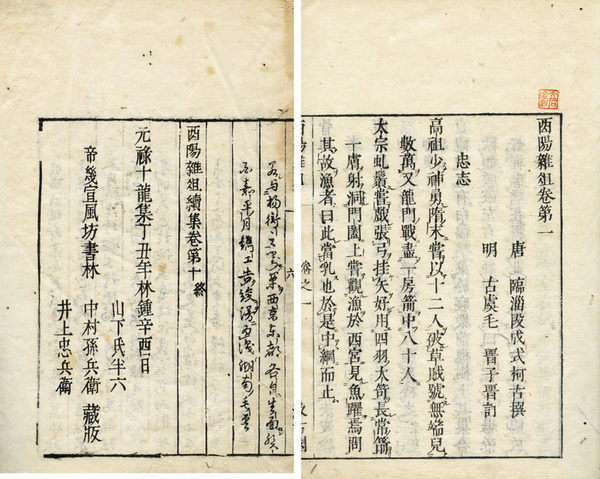 酉陽雜俎卷第一
唐 臨淄段成式柯古撰
明 古虞毛 晋子晋訂
忠志
高祖少神勇隋末嘗以十二人破草賊號無端兒
數萬又龍門戰盡一房箭中八十人
太宗虬鬚嘗戲張弓挂矢好用四羽大笴長常箭
一膚射洞門闔上嘗觀漁於西宮見魚躍焉問
其故漁者曰此當乳也於是中網而止
酉陽雜俎
卷之一
六
酉陽雜俎續集卷第十 終
元禄十龍集丁丑年林鐘辛酉日
山下氏半六
帝畿宣風坊書林 中村孫兵衛 藏版
井上忠兵衛